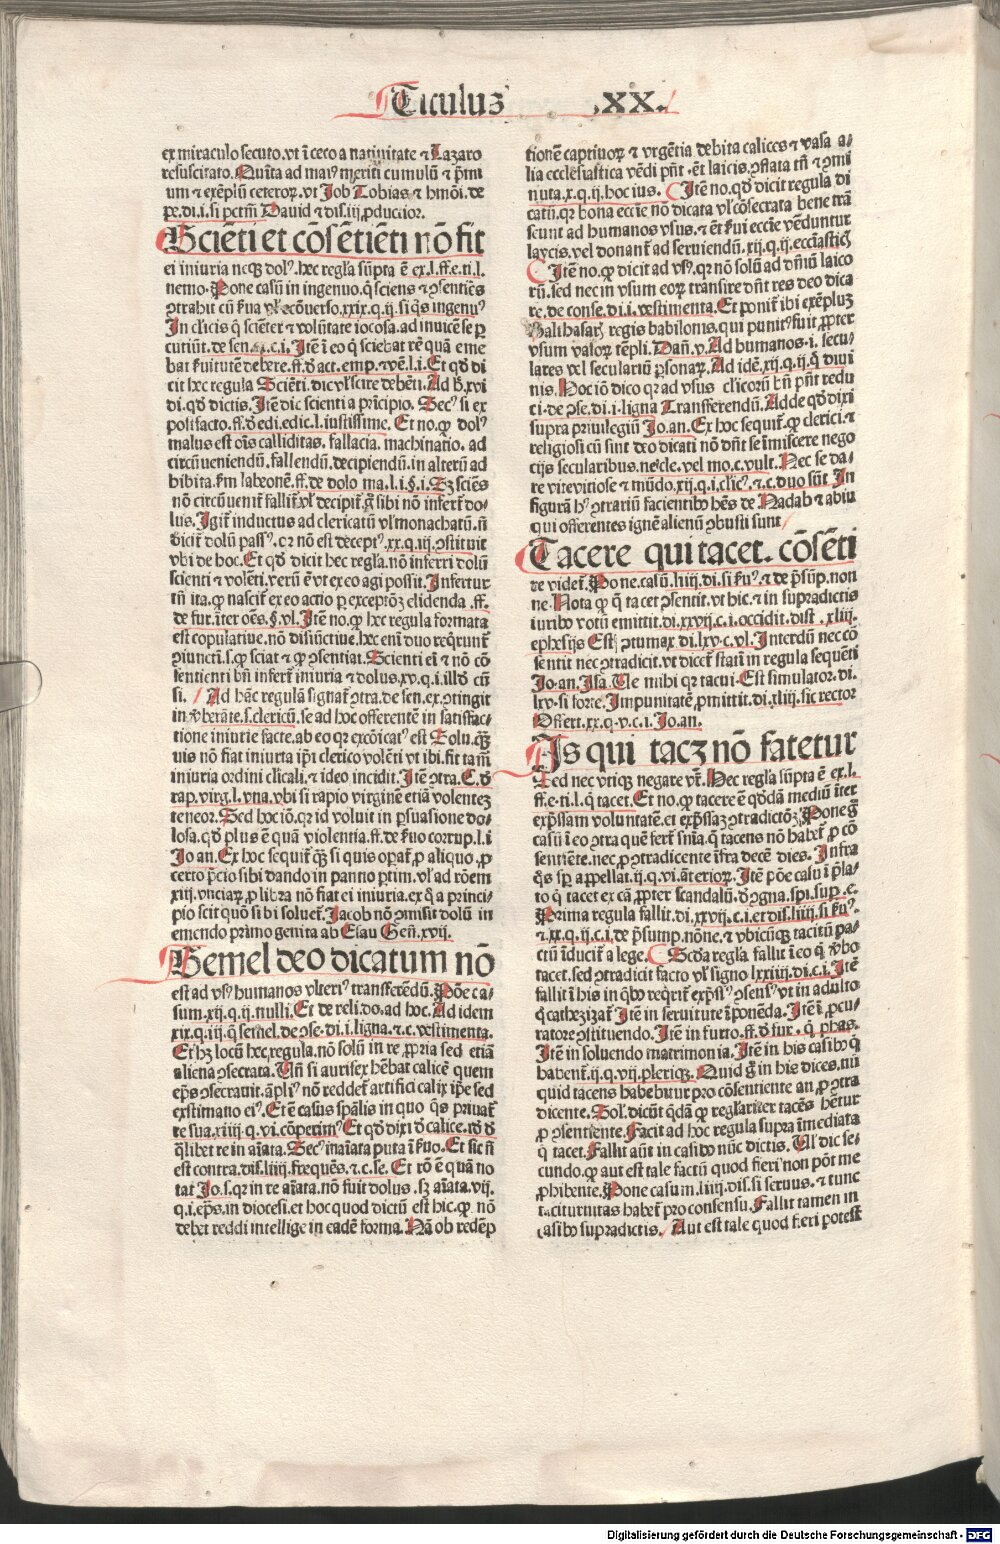 Titulus .XX.
ex miraculo secuto. vt ī ceco a natiuitate ⁊ Lazaro
resuscitato. Quīta ad maiꝰ meriti cumulū ⁊ p̄mi
um ⁊ exēplū ceteroꝝ. vt Job Tobias ⁊ hmōi. de
pe. di. i. si pctm̄ Dauid ⁊ dis. iij. ꝓductior.
Sciēti et cōsētiēti nō fit
ei iniuria neqꝫ dolꝰ. hec regl̄a sūpta ē ex. l. ff. e. ti. l.
nemo. Pone casū in ingenuo. q̄ sciens ⁊ ꝯsentiēs
ꝯtrahit cū ẜua vl̓ ecōuerso. xxix. q. ij. si q̄s ingenuꝰ
In cl̓icis q̄ sciēter ⁊ volūtate iocosa. ad inuicē se ꝑ
cutiūt. de sen. ex. c. i. Itē ī eo q̄ sciebat rē quā eme
bat ẜuitutē debere. ff. d̓ act. emp. ⁊ vē. l. i. Et qd̓ di
cit hec regula Sciēti. dic vl̓ scire debēti. Ad h̓. xvi
di. qd̓ dictis. Itē dic scienti a prīcipio. Secꝰ si ex
postfacto. ff. d̓ edi. edic. l. iustissime. Et no. ꝙ dolꝰ
malus est oīs calliditas. fallacia. machinatio. ad
circūueniendū. fallendū. decipiendū. in alterū ad
hibita. ẜm labeonē. ff. de dolo ma. l. i. §. i. Sꝫ sciēs
nō circūuenit̄ fallit̄ vl̓ decipit̄. g̊ sibi nō infert̄ do-
lus. Igit̄ inductus ad clericatū vl̓ monachatū. n̄
dicit̄ dolū passꝰ. cz non est deceptꝰ. xx. q. iij. ꝯstituit
vbi de hoc. Et qd̓ dicit hec regl̄a. nō inferri dolū
scienti ⁊ volēti. verū ē vt ex eo agi possit. Infertur
tn̄ ita. ꝙ nascit̄ ex eo actio ꝑ exceptōꝫ elidenda. ff.
de fur. īter oēs. §. vl. Itē no. ꝙ hec regula formata
est copulatiue. nō disiūctiue. hec enī duo reqrunt̄
ꝯiuncti. s. ꝙ sciat ⁊ ꝙ ꝯsentiat. Scienti eī ⁊ nō cō
sentienti bn̄ infert̄ iniuria ⁊ dolus. xv. q. i. illd̓ cū
si. Ad hāc regulā signat̄ ꝯtra. de sen. ex. ꝯtingit
in v̓berāte. s. clericū. se ad hoc offerentē in satisfac-
tione iniurie facte. ab eo qz excōicatꝰ est Solu. qꝙ
uis nō fiat iniuria ip̄i clerico volēti vt ibi. fit tamē
iniuria ordini cl̓icali. ⁊ ideo incidit. Itē ꝯtra. C. d̓
rap. virg. l. vna. vbi si rapio virginē etiā volentez
teneor. Sed hoc iō. qz id voluit in ꝑsuasione do-
losa. qd̓ plus ē quā violentia. ff. de ẜuo corrup. l. i
Jo an. Ex hoc sequit̄ qꝙ si quis opat̄ ꝓ aliquo. ꝓ
certo p̄cio sibi dando in panno ꝑtim. vl̓ ad rōem
xiij. vnciaꝝ. ꝓ libra nō fiat ei iniuria. ex q̄ a princi-
pio scit quō si bi soluet̄. Jacob nō ꝯmisit dolū in
emendo primo genita ab Esau Gen̄. xvij.
Semel deo dicatum nō
est ad vsꝰ humanos vlteriꝰ transferēdū. Pōe ca-
sum. xij. q. ij. nulli. Et de reli. do. ad hoc. Ad idem
xix. q. iij. q̄ semel. de ꝯse. di. i. ligna. ⁊ c. vestimenta.
Et hꝫ locū hec regula. nō solū in re ꝓpria sed etiā
aliena ꝯsecrata. Vn̄ si aurifex hēbat calicē quem
ep̄s ꝯsecrauit. āpliꝰ nō reddet̄ artifici calix ip̄e sed
existimano eiꝰ. Et ē casus sp̄alis in quo q̄s priuat̄
re sua. xiiij. q. vi. cōperimꝰ Et qd̓ dixi d̓ calice. id̓ d̓
q̄libet re in aīata. Secꝰ inaīata puta ī ẜuo. Et sic si
est contra. dis. liiij. frequēs. ⁊ c. se. Et rō ē quā no
tat Jo. s. qz in re aīata. nō fuit dolus. sꝫ aīata. vij.
q. i. ep̄s. in diocesi. et hoc quod dictū est hic. ꝙ nō
debet reddi intellige in eadē forma. Nā ob redēp
tionē captiuoꝝ ⁊ vrgētia debita calices ⁊ vasa a-
lia ecclesiastica vēdi pn̄t. et̄ laicis. ꝯflata tn̄ ⁊ ꝯmi
nuta. x. q. ij. hoc ius. Itē no. qd̓ dicit regula di
catū. qz bona ecc̄ie nō dicata vl̓ cōsecrata bene trā
seunt ad humanos vsus. ⁊ et̄ ẜui ecc̄ie vēduntur
laycis. vel donant̄ ad seruiendū. xij. q. ij. ecc̄iasticꝭ
Itē no. ꝙ dicit ad vsꝰ. qz nō solū ad dn̄iū laico
rū. sed nec in vsum eoꝝ transire dn̄t res deo dica
te. de conse. di. i. vestimenta. Et ponit̄ ibi exēpluz
Balthasarꝭ regis babilonis. qui punitꝰ fuit ꝓpter
vsum vasoꝝ tēpli. Dan̄. v. Ad humanos. i. secu-
lares vel seculariū ꝑsonaꝝ. Ad idē. xij. q. ij. q̄ diui
nis. Hoc iō dico qz ad vsus cl̓icorū bn̄ pn̄t redu
ci. de ꝯse. di. i. ligna Transferendū. Adde qd̓ dixi
supra priuilegiū Jo. an. Ex hoc sequit̄. ꝙ clerici. ⁊
religiosi cū sint deo dicati nō dn̄t se īmiscere nego
cijs secularibus. ne cle. vel mo. c. vult. Nec se da-
re vite vitiose ⁊ mūdo. xij. q. i. cl̓icꝰ. ⁊ c. duo sūt. In
figurā hꝰ ꝯtrariū facientibꝰ hēs de Nadab ⁊ abiu
qui offerentes ignē alienū ꝯbusti sunt
Tacere qui tacet. cōsēti
re videt̄. Pone. casū. liiij. di. si ẜuꝰ. ⁊ de p̄sūp. non
ne. Nota ꝙ q̄ tacet ꝯsentit. vt hic. ⁊ in supradictis
iuribꝰ votū emittit. di. xxvij. c. i. occidit. dist. xliij.
ephesijs Est ꝯtumax di. lxv. c. vl. Interdū nec cō
sentit nec ꝯtradicit. vt dicet̄ statī in regula sequēti
Jo. an. Isa. Ve mihi qz tacui. Est simulator. di.
lxv. si forte. Impunitatē ꝓmittit. di. xliij. sic rector
Offert. xx. q. v. c. i. Jo. an.
Is qui tacz nō fatetur
Sed nec vtiqꝫ negare vr̄. Hec regl̄a sūpta ē ex. l.
ff. e. ti. l. q̄ tacet. Et no. ꝙ tacere ē qd̓dā mediū īter
exp̄ssam voluntatē. et exp̄ssaꝫ ꝯtradictōꝫ. Pone g̊
casū ī eo ꝯtra quē fert̄ sn̄ia. q̄ tacens nō habet̄ ꝓ cō
sentiēte. nec ꝓ ꝯtradicente īfra decē dies. Infra
q̄s sp̄ appellat. ij. q. vi. āterioꝝ. Itē pōe casū ī p̄la-
to q̄ tacet ex cā ꝓpter scandalū. d̓ ꝯgna. sp̄i. sup. e.
Prima regula fallit. di. xxvij. c. i. et dis. liiij. si ẜuꝰ.
⁊ xx. q. ij. c. i. de p̄sump. nōne. ⁊ vbicūqꝫ tacitū pa-
ctū īducit̄ a lege. Scd̓a regl̄a. fallit ī eo q̄ v̓bo
tacet. sed ꝯtradicit facto vl̓ signo lxxiiij. di. c. i. Itē
fallit ī his in qbꝰ reqrit̄ exp̄ssꝰ ꝯsensꝰ. vt in adulto
q̄ cathezizat̄ Itē in seruitute īponēda. Itē ī ꝓcu-
ratore ꝯstituendo. Itē in furto. ff. d̓ fur. q̄ phas.
Itē in soluendo matrimonia. Itē in his casibꝰ q̄
habent̄. ij. q. vij. pleriqꝫ. Quid g̊ in his dices. nū
quid tacens habebunt̄ pro cōsentiente an ꝓ ꝯtra
dicente. Sol. dicūt qdā ꝙ regl̄ariter tacēs hētur
ꝓ ꝯsentiente. Facit ad hoc regula supra īmediata
q̄ tacet. Fallit aūt in casibꝰ nūc dictis. Vl̓ dic se-
cundo. ꝙ aut est tale factū quod fieri non pōt me
ꝓhibente. Pone casum. liiij. dis. si seruus. ⁊ tunc
taciturnitas habet̄ pro consensu. Fallit tamen in
casibꝰ supradictis. Aut est tale quod fieri potest
Digitalisierung gefördert durch die Deutsche Forschungsgemeinschaft - DFG